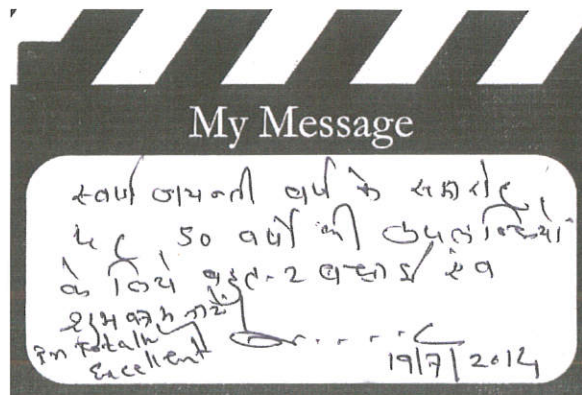 My Message
स्वर्ण जयन्ती वर्ष के समारोह
पर 50 वर्षों की उपलब्धियों
के लिये बहुत-2 बधाई एवं
शुभकामनायें
In totally
Excellent
19/7/2014